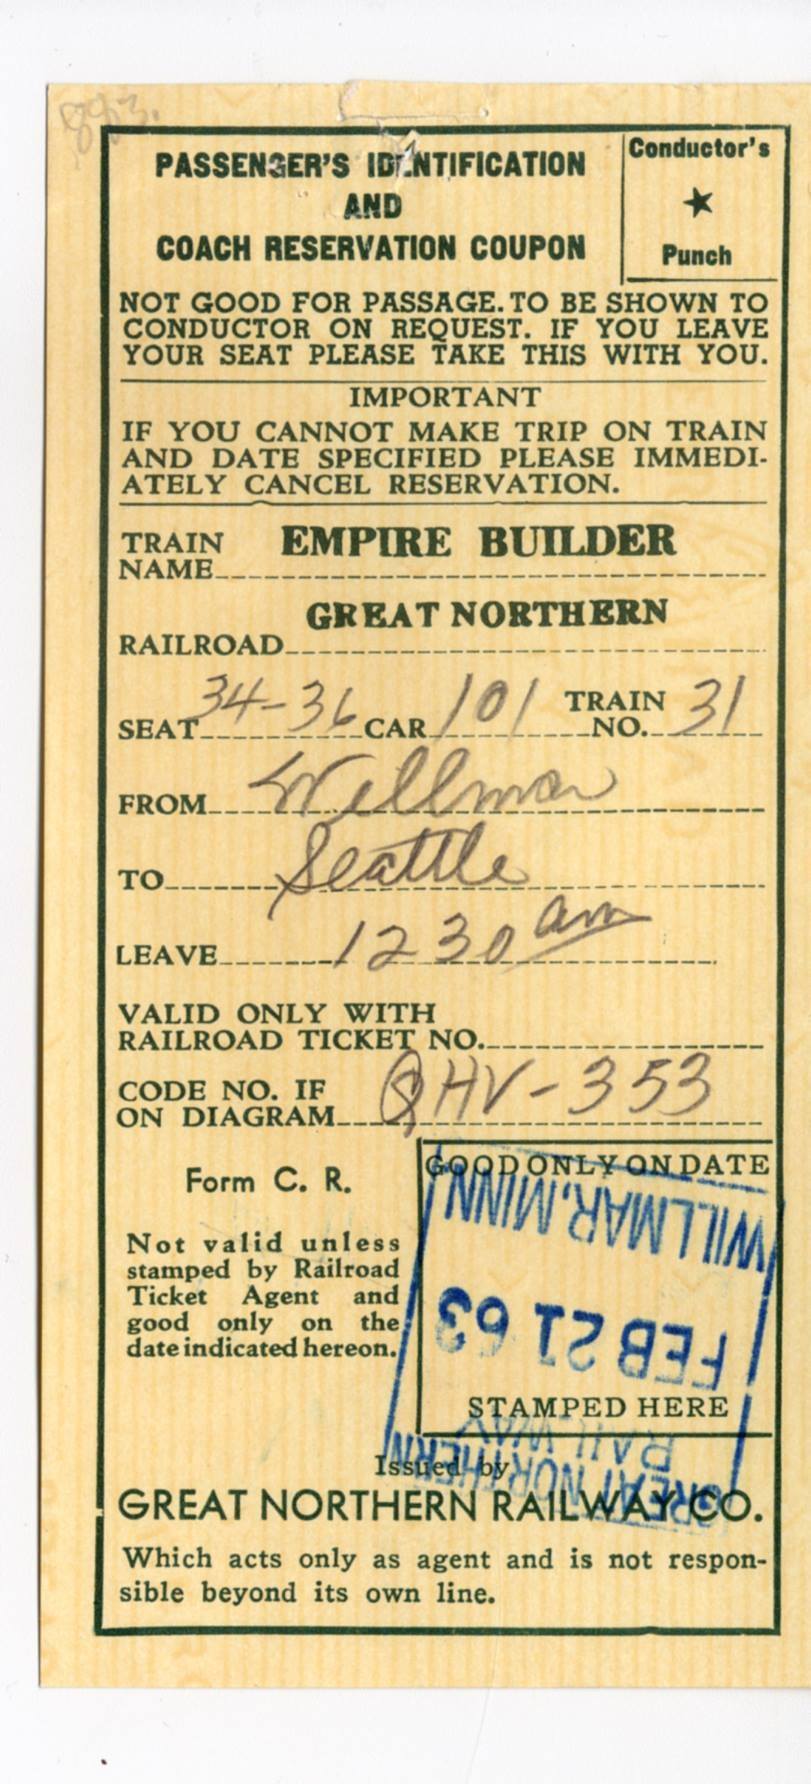 883.
PASSENGER'S IDENTIFICATION
AND
COACH RESERVATION COUPON
Conductor's
★
Punch
NOT GOOD FOR PASSAGE. TO BE SHOWN TO
CONDUCTOR ON REQUEST. IF YOU LEAVE
YOUR SEAT PLEASE TAKE THIS WITH YOU.
IMPORTANT
IF YOU CANNOT MAKE TRIP ON TRAIN
AND DATE SPECIFIED PLEASE IMMEDI-
ATELY CANCEL RESERVATION.
TRAIN NAME EMPIRE BUILDER
RAILROAD GREAT NORTHERN
SEAT 34-36 CAR 101 TRAIN NO. 31
FROM Willmar
TO Seattle
LEAVE 12 30 am
VALID ONLY WITH
RAILROAD TICKET NO.
CODE NO. IF
ON DIAGRAM QHV-353
Form C. R.
Not valid unless
stamped by Railroad
Ticket Agent and
good only on the
date indicated hereon.
GOOD ONLY ON DATE
STAMPED HERE
GREAT NORTHERN
RAILWAY
FEB 21 63
WILLMAR, MINN
Issued by
GREAT NORTHERN RAILWAY CO.
Which acts only as agent and is not respon-
sible beyond its own line.